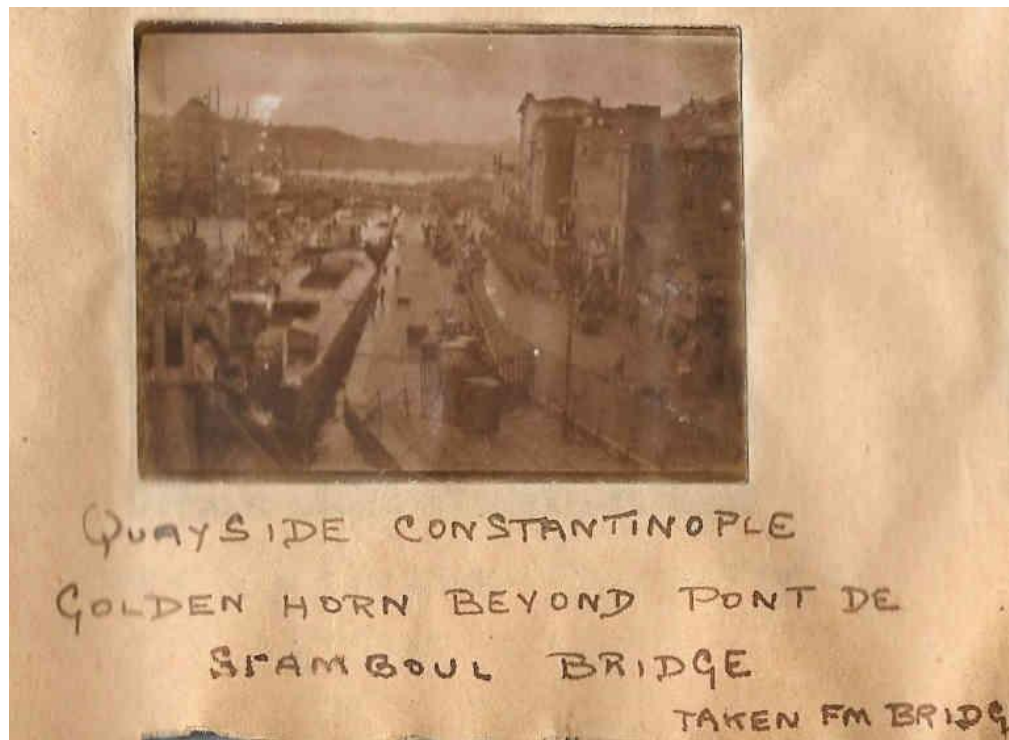 QUAYSIDE CONSTANTINOPLE
GOLDEN HORN BEYOND PONT DE
STAMBOUL BRIDGE
TAKEN FM BRIDG